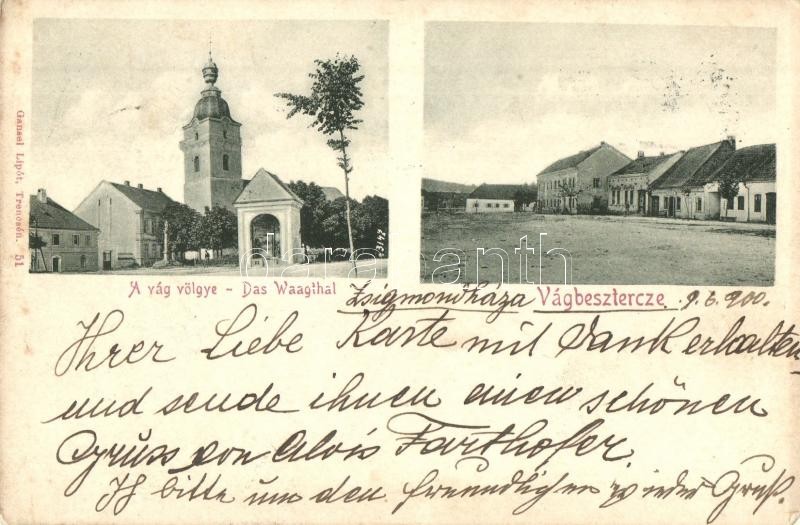 Gansel Lipót, Trencsén. 51
3142
darabanth
A vág völgye - Das Waagthal
Zsigmondháza Vágbesztercze 9. 6. 900.
Ihrer Liebe Karte mit Dank erhalten
und sende ihnen einen schönen
Gruss von Alois Farthofer
Ich bitte um den freundlichen wieder Gruß.